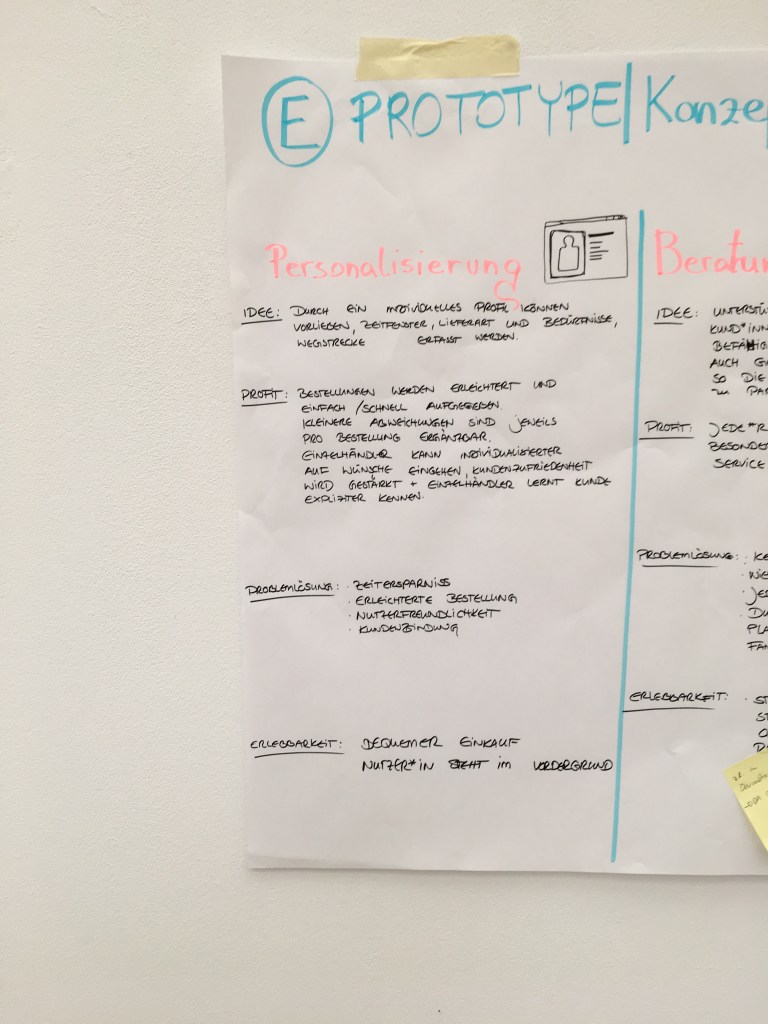 E PROTOTYPE | Konzep
Personalisierung
IDEE: DURCH EIN INDIVIDUELLES PROFIL KÖNNEN
VORLIEBEN, ZEITFENSTER, LIEFERART UND BEDÜRFNISSE,
WEGSTRECKE ERFASST WERDEN.
PROFIT: BESTELLUNGEN WERDEN ERLEICHTERT UND
EINFACH / SCHNELL AUFGEGEBEN.
KLEINERE ABWEICHUNGEN SIND JEWEILS
PRO BESTELLUNG ERGÄNZBAR.
EINZELHÄNDLER KANN INDIVIDUALISIERTER
AUF WÜNSCHE EINGEHEN, KUNDENZUFRIEDENHEIT
WIRD GESTÄRKT + EINZELHÄNDLER LERNT KUNDE
EXPLIZITER KENNEN.
PROBLEMLÖSUNG: · ZEITERSPARNISS
· ERLEICHTERTE BESTELLUNG
· NUTZERFREUNDLICHKEIT
· KUNDENBINDUNG
ERLEBBARKEIT: BEQUEMER EINKAUF
NUTZER*IN STEHT im VORDERGRUND
Beratun
IDEE: UNTERSTÜ
KUND*INN
BEFÄHIG
AUCH G
SO DIE
PROFIT: JEDE*R
BESONDER
SERVICE
PROBLEMLÖSUNG: · KE
· WIE
· JED
· DU
PLA
FAN
ERLEBBARKEIT: · ST
ST